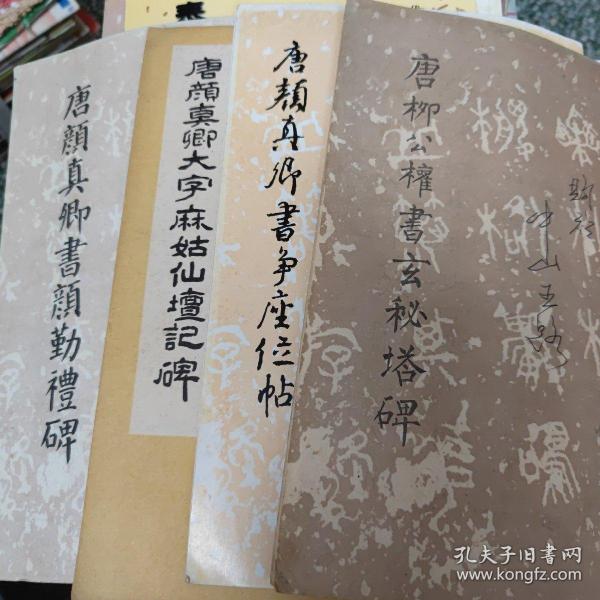 唐顏真卿書顏勤禮碑
唐顔真卿大字麻姑仙壇記碑
唐顏真卿書争座位帖
唐柳公權書玄秘塔碑
中山王路
孔夫子旧书网
www.kongfz.com